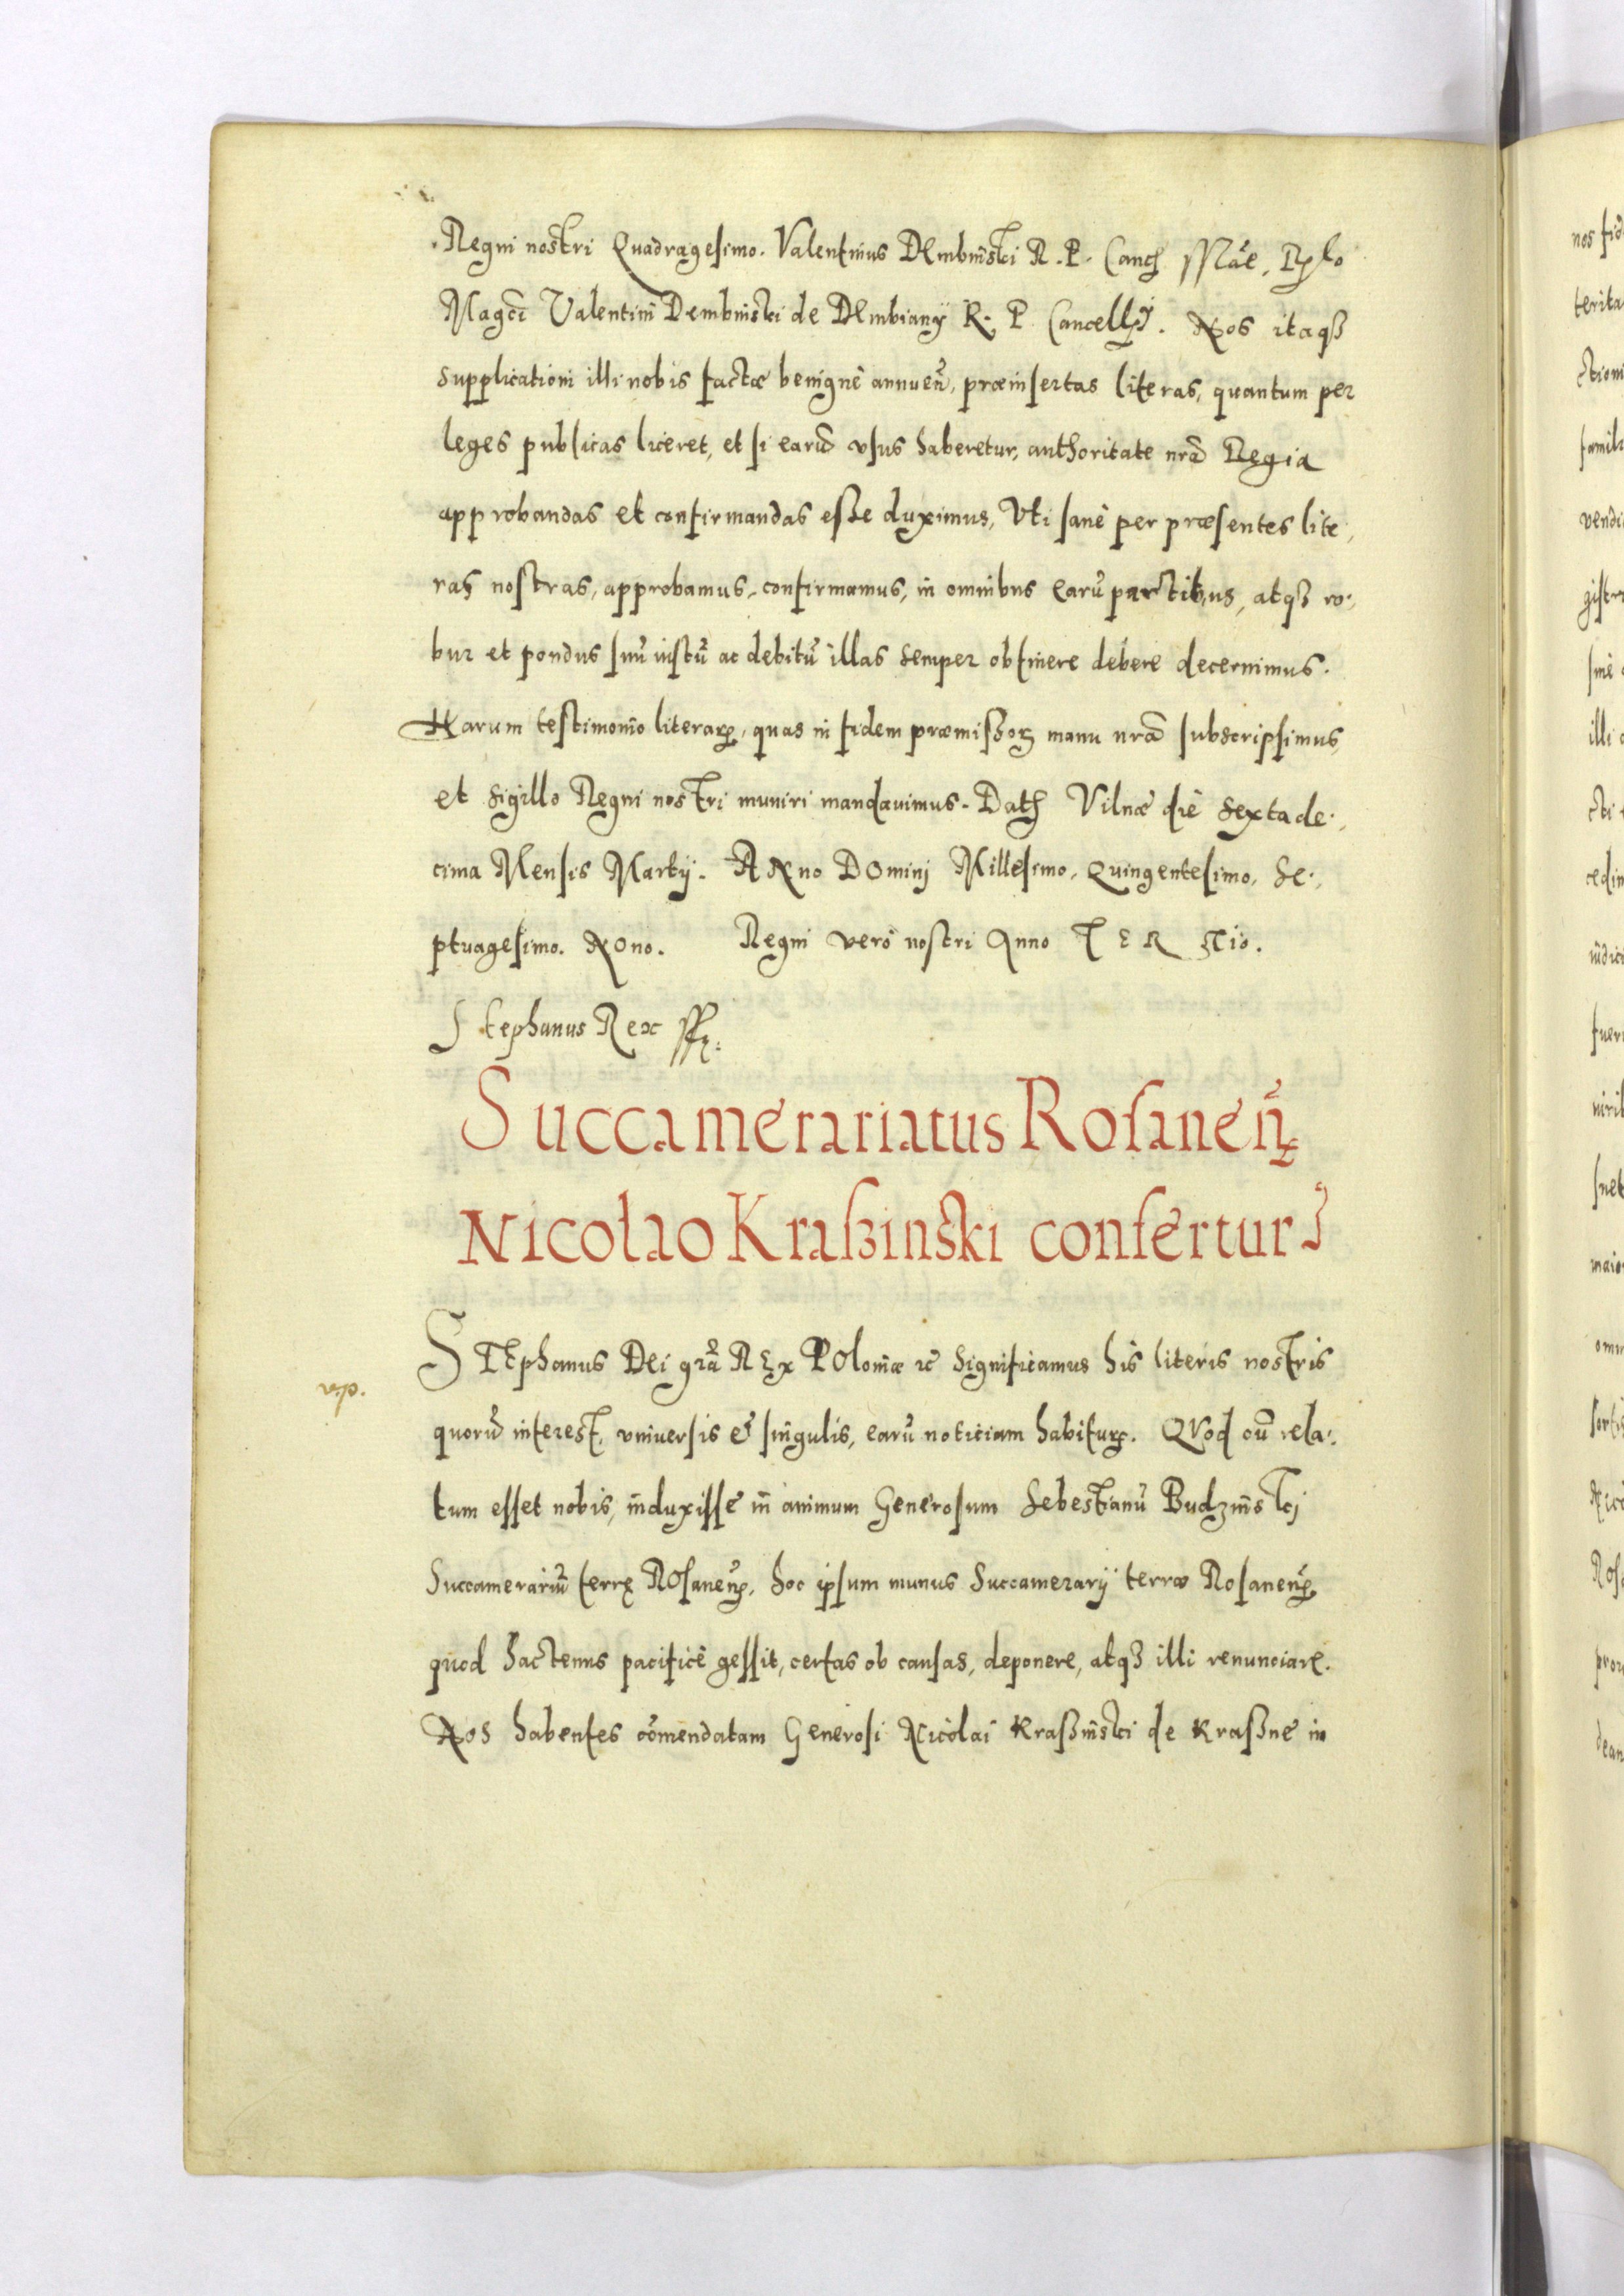 Regni nostri Quadragesimo. Valentinus DEmbinski R. P. Canc̃ sst. Rela͠o
Magc̃i Valentini Dembinski de DEmbiany R. P. Cancellrÿ. Nos itaqȝ
supplicationi illi nobis factæ benignè annuen̄, præinsertas literas, quantum per
leges publicas liceret, et si earū vsus haberetur, authoritate nr̄a Regia
approbandas et confirmandas esse duximus, Vti sanè per præsentes lite,
ras nostras, approbamus, confirmamus, in omnibus earū partibus, atqȝ ro,
bur et pondus suū iustū ac debitū illas semper obtinere debere decernimus.
Harum testimonio literarꝝ, quas in fidem præmissoꝝ manu nr̄a subscripsimus,
et sigillo Regni nostri muniri mandauimus. Dat̃ Vilnæ diè sexta de,
cima Mensis Martÿ. ANno DOminj Millesimo, Quingentesimo, Se,
ptuagesimo. NOno. Regni verò nostri Anno TERTio.
Stephanus Rex sst.
Succamerariatus Rosaneñ
Nicolao Kraßinski confertur
STEphanus Dei gr̄a REx POloniæ ꝛc̃ Significamus his literis nostris
quorū interest, vniuersis & singulis, earū noticiam habiturꝭ. QVod cū rela,
tum esset nobis, induxisse in animum Generosum Sebestianū Budzinskj
Succamerariū terrę ROsaneñ, hoc ipsum munus Succamerarÿ terræ Rosaneñ,
quod hactenus pacificè gessit, certas ob causas, deponere, atqȝ illi renunciarę.
NOs habentes cōmendatam Generosi Nicolai Kraßinski de Kraßne in